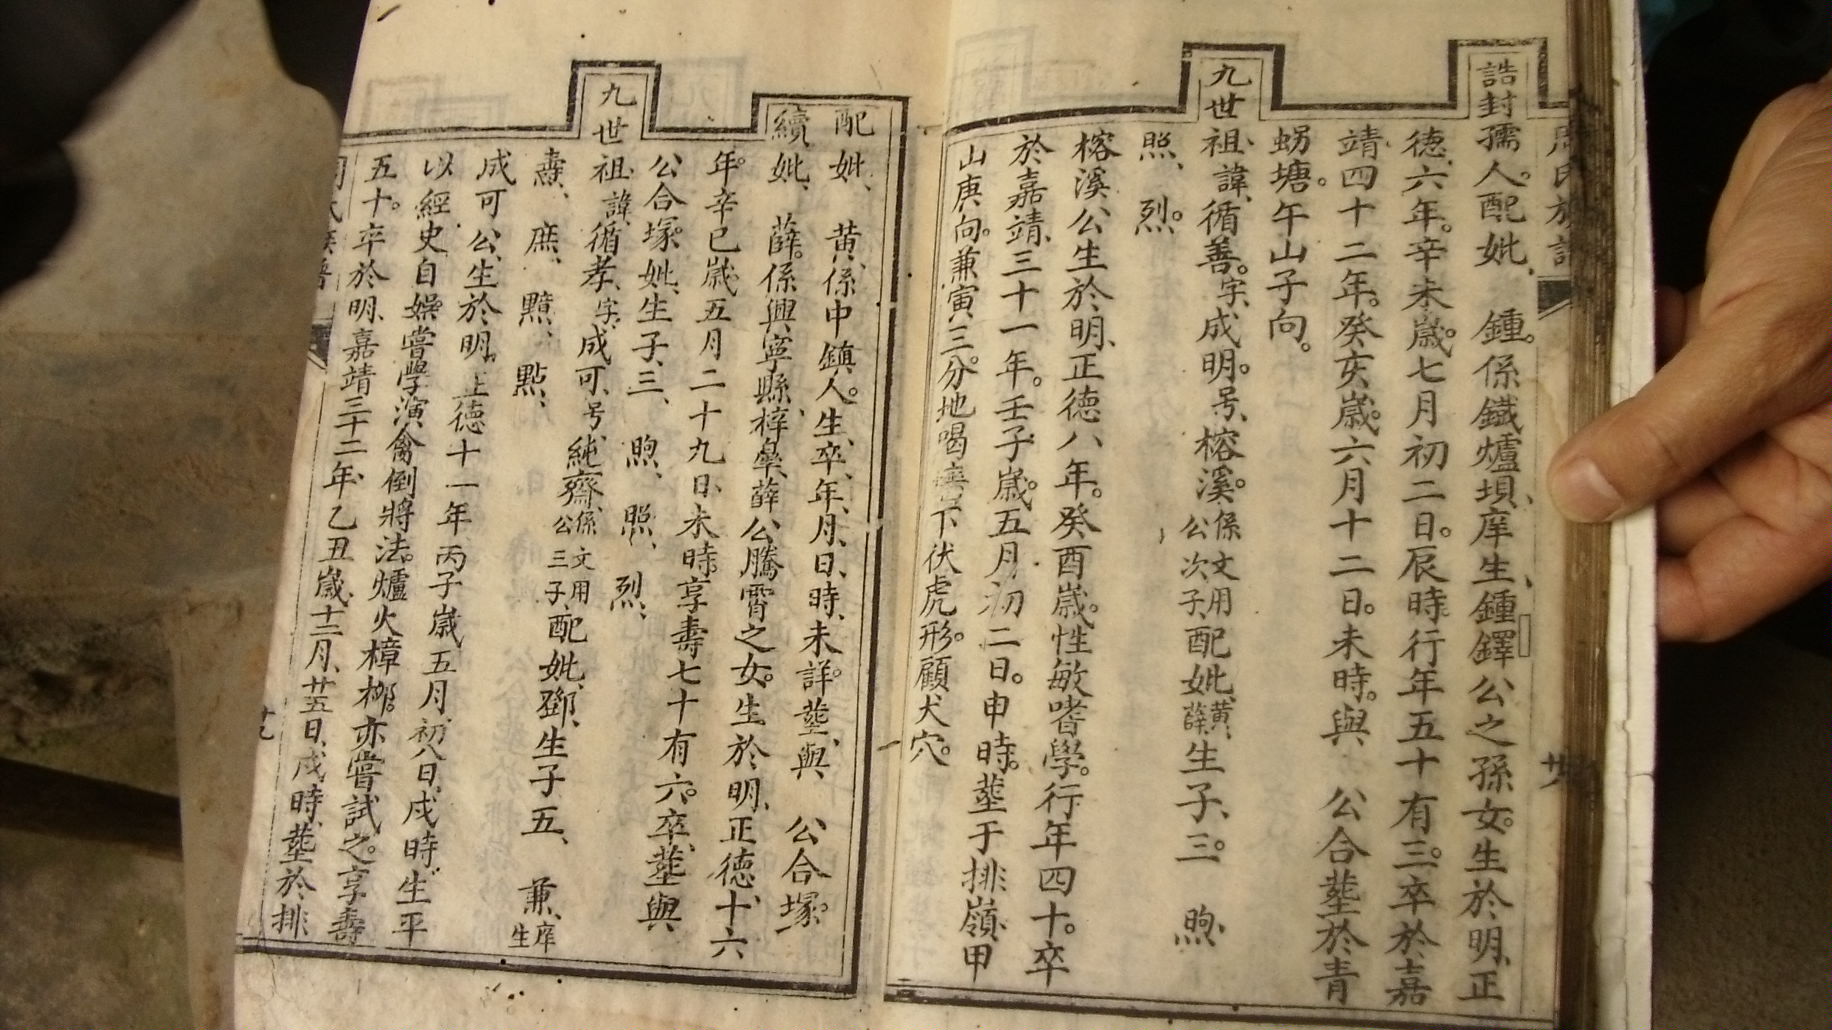 周氏族譜
誥封孺人。配妣、鍾。係鐵爐垻、庠生、鍾鐸公之孫女。生於明、正
德、六年。辛未歲。七月初二日。辰時。行年五十有三。卒於嘉
靖、四十二年。癸亥歲。六月十二日。未時。與 公合塟於青
蛎塘。午山子向。
九世祖、諱、循善。字、成明。号、榕溪。係文用公次子、配妣、黃、薛、生子、三。 煦、
照、 烈。
榕溪公生於明、正德八年。癸酉歲。性敏嗜學。行年四十。卒
於嘉靖、三十一年。壬子歲。五月初二日。申時。塟于排嶺、甲
山庚向。兼寅三分地喝 下伏虎形。顧犬穴。
配妣、 黃、係中鎮人。生、卒、年、月、日、時、未詳。塟、與 公合塚。
續妣、 薛。係興寧縣、梓皋、薛公騰霄之女。生於明、正德、十六
年。辛巳歲五月二十九日、未時。享壽七十有六。卒、塟與
公合塚。妣、生子、三、 煦、 照、 烈、
九世祖、諱、循孝、字、成可、号、純齋、係文用公三子、配妣、鄧、生子五、 兼、庠生
燾、 庶、 黯、 點、
成可公、生於明、正德十一年丙子歲五月、初八日、戌時、生平
以經史自娛。嘗學演禽倒將法。爐火樟柳。亦嘗試之。享壽
五十。卒於明、嘉靖三十二年、乙丑歲、十二月、廿五日、戌時、塟於排
周氏族譜
廿九